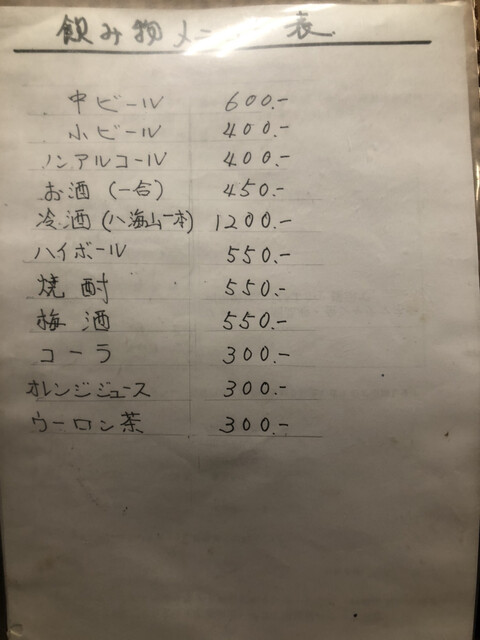 飲み物メニュー表
中ビール 600.-
小ビール 400.-
ノンアルコール 400.-
お酒(一合) 450.-
冷酒(八海山一本) 1200.-
ハイボール 550.-
焼酎 550.-
梅酒 550.-
コーラ 300.-
オレンジジュース 300.-
ウーロン茶 300.-